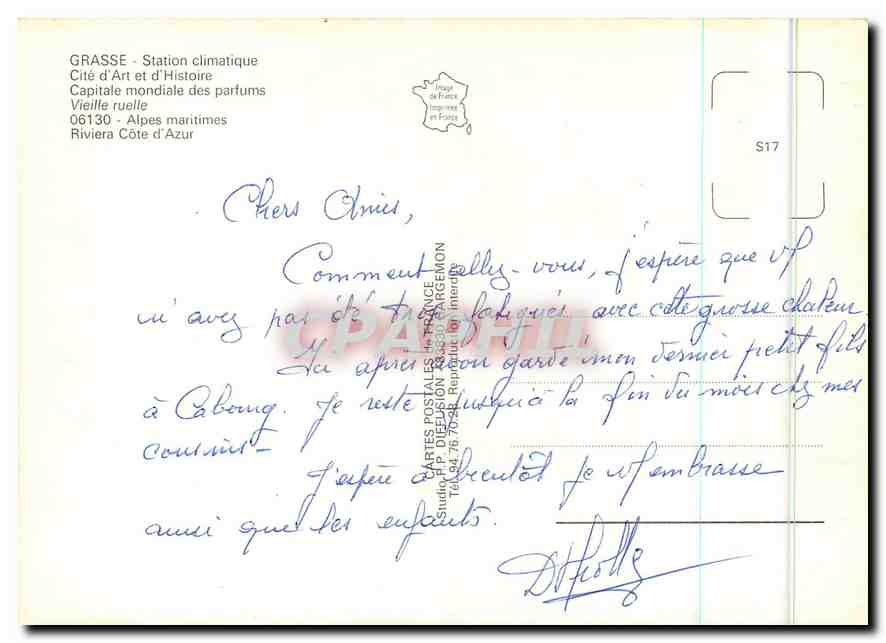 GRASSE - Station climatique
Cité d'Art et d'Histoire
Capitale mondiale des parfums
Vieille ruelle
06130 - Alpes maritimes
Riviera Côte d'Azur
Image
de France
Imprimée
en France
S17
Chers Amis,
Comment allez-vous, j'espère que vs
n'avez pas été trop fatigués avec cette grosse chaleur
Ici après avoir gardé mon dernier petit fils
à Cabourg. Je reste jusqu'à la fin du mois chez mes
cousins -
J'espère à bientôt je vs embrasse
ainsi que les enfants.
CARTES POSTALES de FRANCE
Studio P.P. DIFFUSION *83830 BARGEMON
Tél. 94.76.70.28 Reproduction interdite
CPARAMA